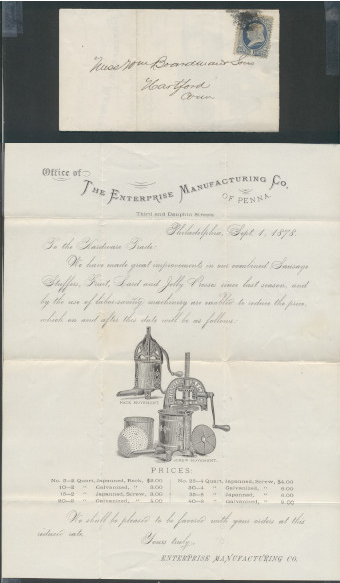 Messrs Wm Boardman & Sons
Hartford
Conn
Office of
THE ENTERPRISE MANUFACTURING CO.
OF PENNA.
Third and Dauphin Streets
Philadelphia, Sept. 1, 1878.
To the Hardware Trade:
We have made great improvements in our combined Sausage
Stuffers, Fruit, Lard and Jelly Press since last season, and
by the use of labor-saving machinery are enabled to reduce the price,
which on and after this date will be as follows:
RACK MOVEMENT.
SCREW MOVEMENT.
PRICES:
No. 5—2 Quart, Japanned, Rack,
No. 35—4 Quart, Japanned, Screw, $4.00
10—2 " Galvanized, "
30—4 " Galvanized, "
15—2 " Japanned, Screw, 3.00
35—8 " Japanned, "
20—2 " Galvanized, " 4.00
40—8 " Galvanized, "
We shall be pleased to be favored with your orders at this
reduced rate.
Yours truly,
ENTERPRISE MANUFACTURING CO.